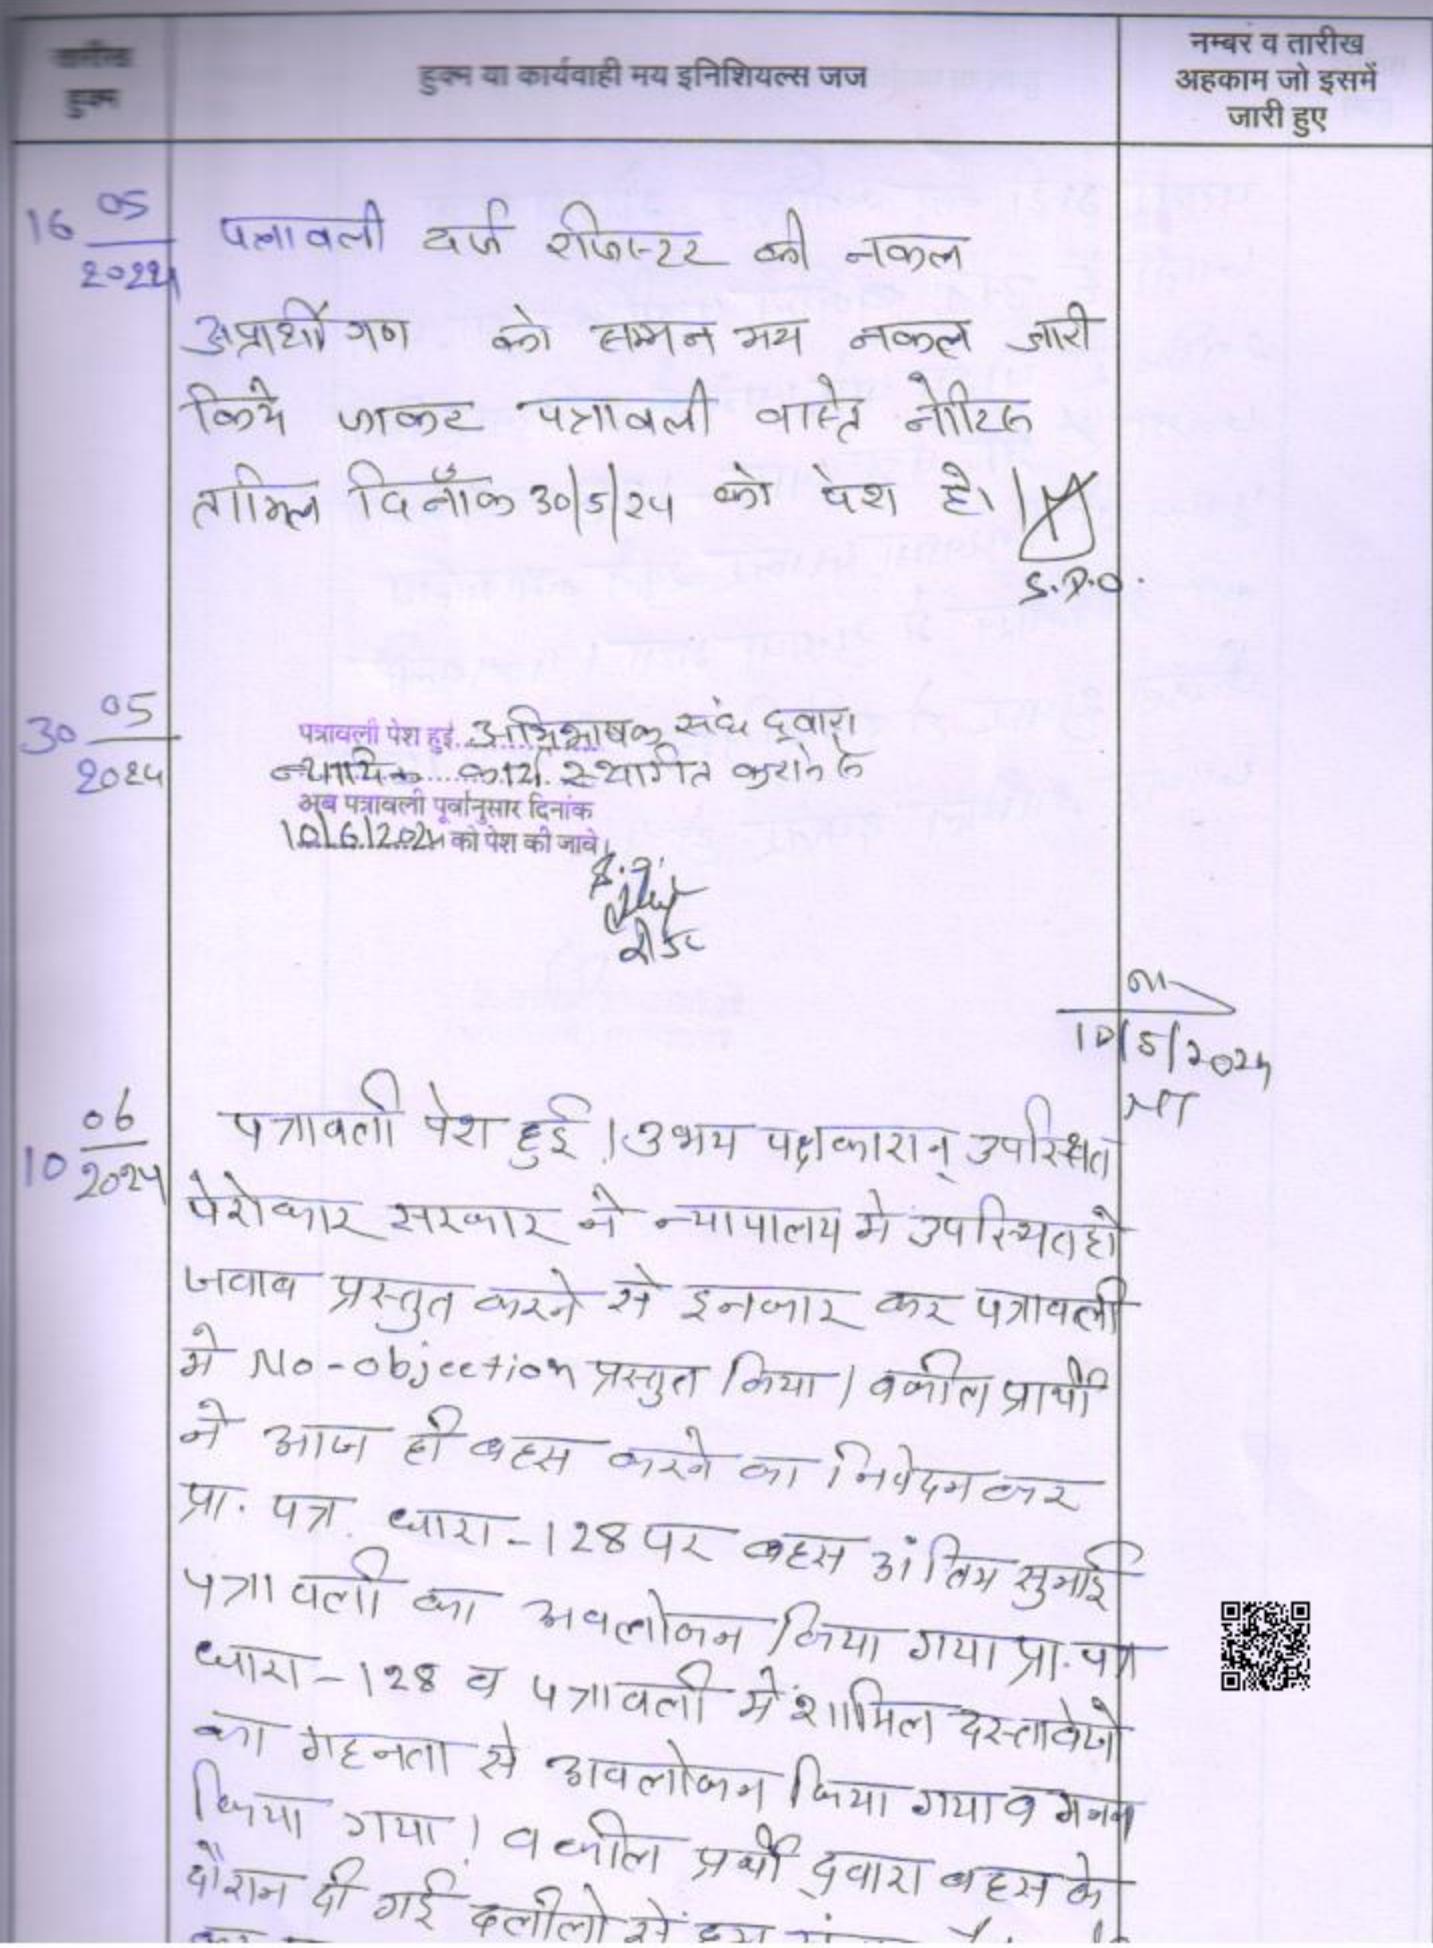 तारीख
हुक्म
हुक्म या कार्यवाही मय इनिशियल्स जज
नम्बर व तारीख
अहकाम जो इसमें
जारी हुए
16 05
2024
पत्रावली दर्ज रजिस्टर की नकल
अप्रार्थीगण को सम्मन मय नकल जारी
किये जाकर पत्रावली वास्ते नोटिस
तामिल दिनाँक 30/5/24 को पेश है।
S.D.O.
30 05
2024
पत्रावली पेश हुई अभिभाषक संघ द्वारा
न्यायिक कार्य स्थगित कराने के
अब पत्रावली पूर्वानुसार दिनांक
10/6/2024 को पेश की जावे।
रीडर
10/5/2024
10 06
2024
पत्रावली पेश हुई। उभय पक्षकारान् उपस्थित
पेरोकार सरकार ने न्यायालय मे उपस्थित हो
जवाब प्रस्तुत करने से इनकार कर पत्रावली
मे No-objection प्रस्तुत किया। वकील प्रार्थी
ने आज ही बहस करने का निवेदन कर
प्रा. पत्र. धारा-128 पर बहस अंतिम सुनाई
पत्रावली का अवलोकन किया गया प्रा. पत्र
धारा-128 व पत्रावली मे शामिल दस्तावेजो
का गहनता से अवलोकन किया गया व मनन
किया गया। वकील प्रार्थी द्वारा बहस के
दौरान दी गई दलीलो से इस